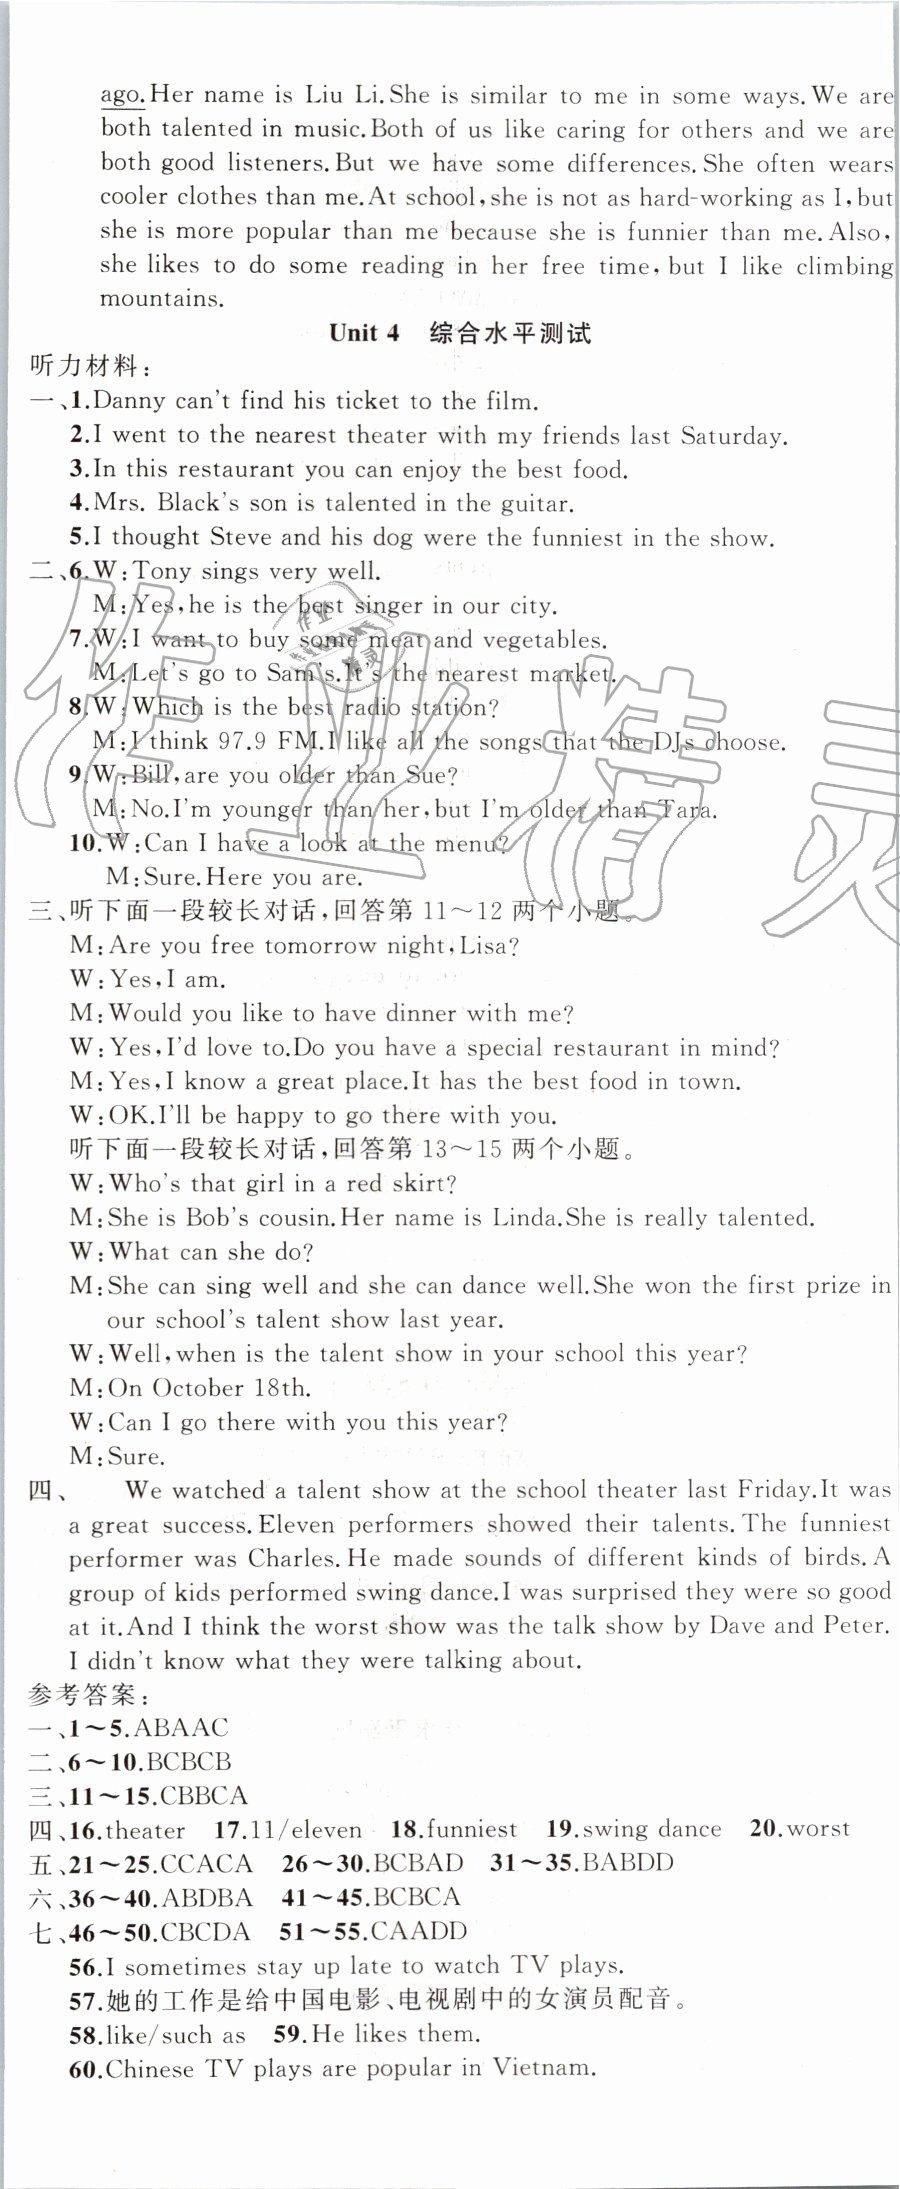 ago.Her name is Liu Li.She is similar to me in some ways.We are
both talented in music.Both of us like caring for others and we are
both good listeners.But we have some differences.She often wears
cooler clothes than me.At school,she is not as hard-working as I,but
she is more popular than me because she is funnier than me.Also,
she likes to do some reading in her free time,but I like climbing
mountains.
Unit 4 综合水平测试
听力材料:
一、1.Danny can't find his ticket to the film.
2.I went to the nearest theater with my friends last Saturday.
3.In this restaurant you can enjoy the best food.
4.Mrs. Black's son is talented in the guitar.
5.I thought Steve and his dog were the funniest in the show.
二、6.W:Tony sings very well.
M:Yes,he is the best singer in our city.
7.W:I want to buy some meat and vegetables.
M:Let's go to Sam's.It's the nearest market.
8.W:Which is the best radio station?
M:I think 97.9 FM.I like all the songs that the DJs choose.
9.W:Bill,are you older than Sue?
M:No.I'm younger than her,but I'm older than Tara.
10.W:Can I have a look at the menu?
M:Sure.Here you are.
三、听下面一段较长对话,回答第 11～12 两个小题。
M:Are you free tomorrow night,Lisa?
W:Yes,I am.
M:Would you like to have dinner with me?
W:Yes,I'd love to.Do you have a special restaurant in mind?
M:Yes,I know a great place.It has the best food in town.
W:OK.I'll be happy to go there with you.
听下面一段较长对话,回答第 13～15 两个小题。
W:Who's that girl in a red skirt?
M:She is Bob's cousin.Her name is Linda.She is really talented.
W:What can she do?
M:She can sing well and she can dance well.She won the first prize in
our school's talent show last year.
W:Well,when is the talent show in your school this year?
M:On October 18th.
W:Can I go there with you this year?
M:Sure.
四、 We watched a talent show at the school theater last Friday.It was
a great success.Eleven performers showed their talents.The funniest
performer was Charles.He made sounds of different kinds of birds.A
group of kids performed swing dance.I was surprised they were so good
at it.And I think the worst show was the talk show by Dave and Peter.
I didn't know what they were talking about.
参考答案:
一、1～5.ABAAC
二、6～10.BCBCB
三、11～15.CBBCA
四、16.theater 17.11/eleven 18.funniest 19.swing dance 20.worst
五、21～25.CCACA 26～30.BCBAD 31～35.BABDD
六、36～40.ABDBA 41～45.BCBCA
七、46～50.CBCDA 51～55.CAADD
56.I sometimes stay up late to watch TV plays.
57.她的工作是给中国电影、电视剧中的女演员配音。
58.like/such as 59.He likes them.
60.Chinese TV plays are popular in Vietnam.
作业精灵